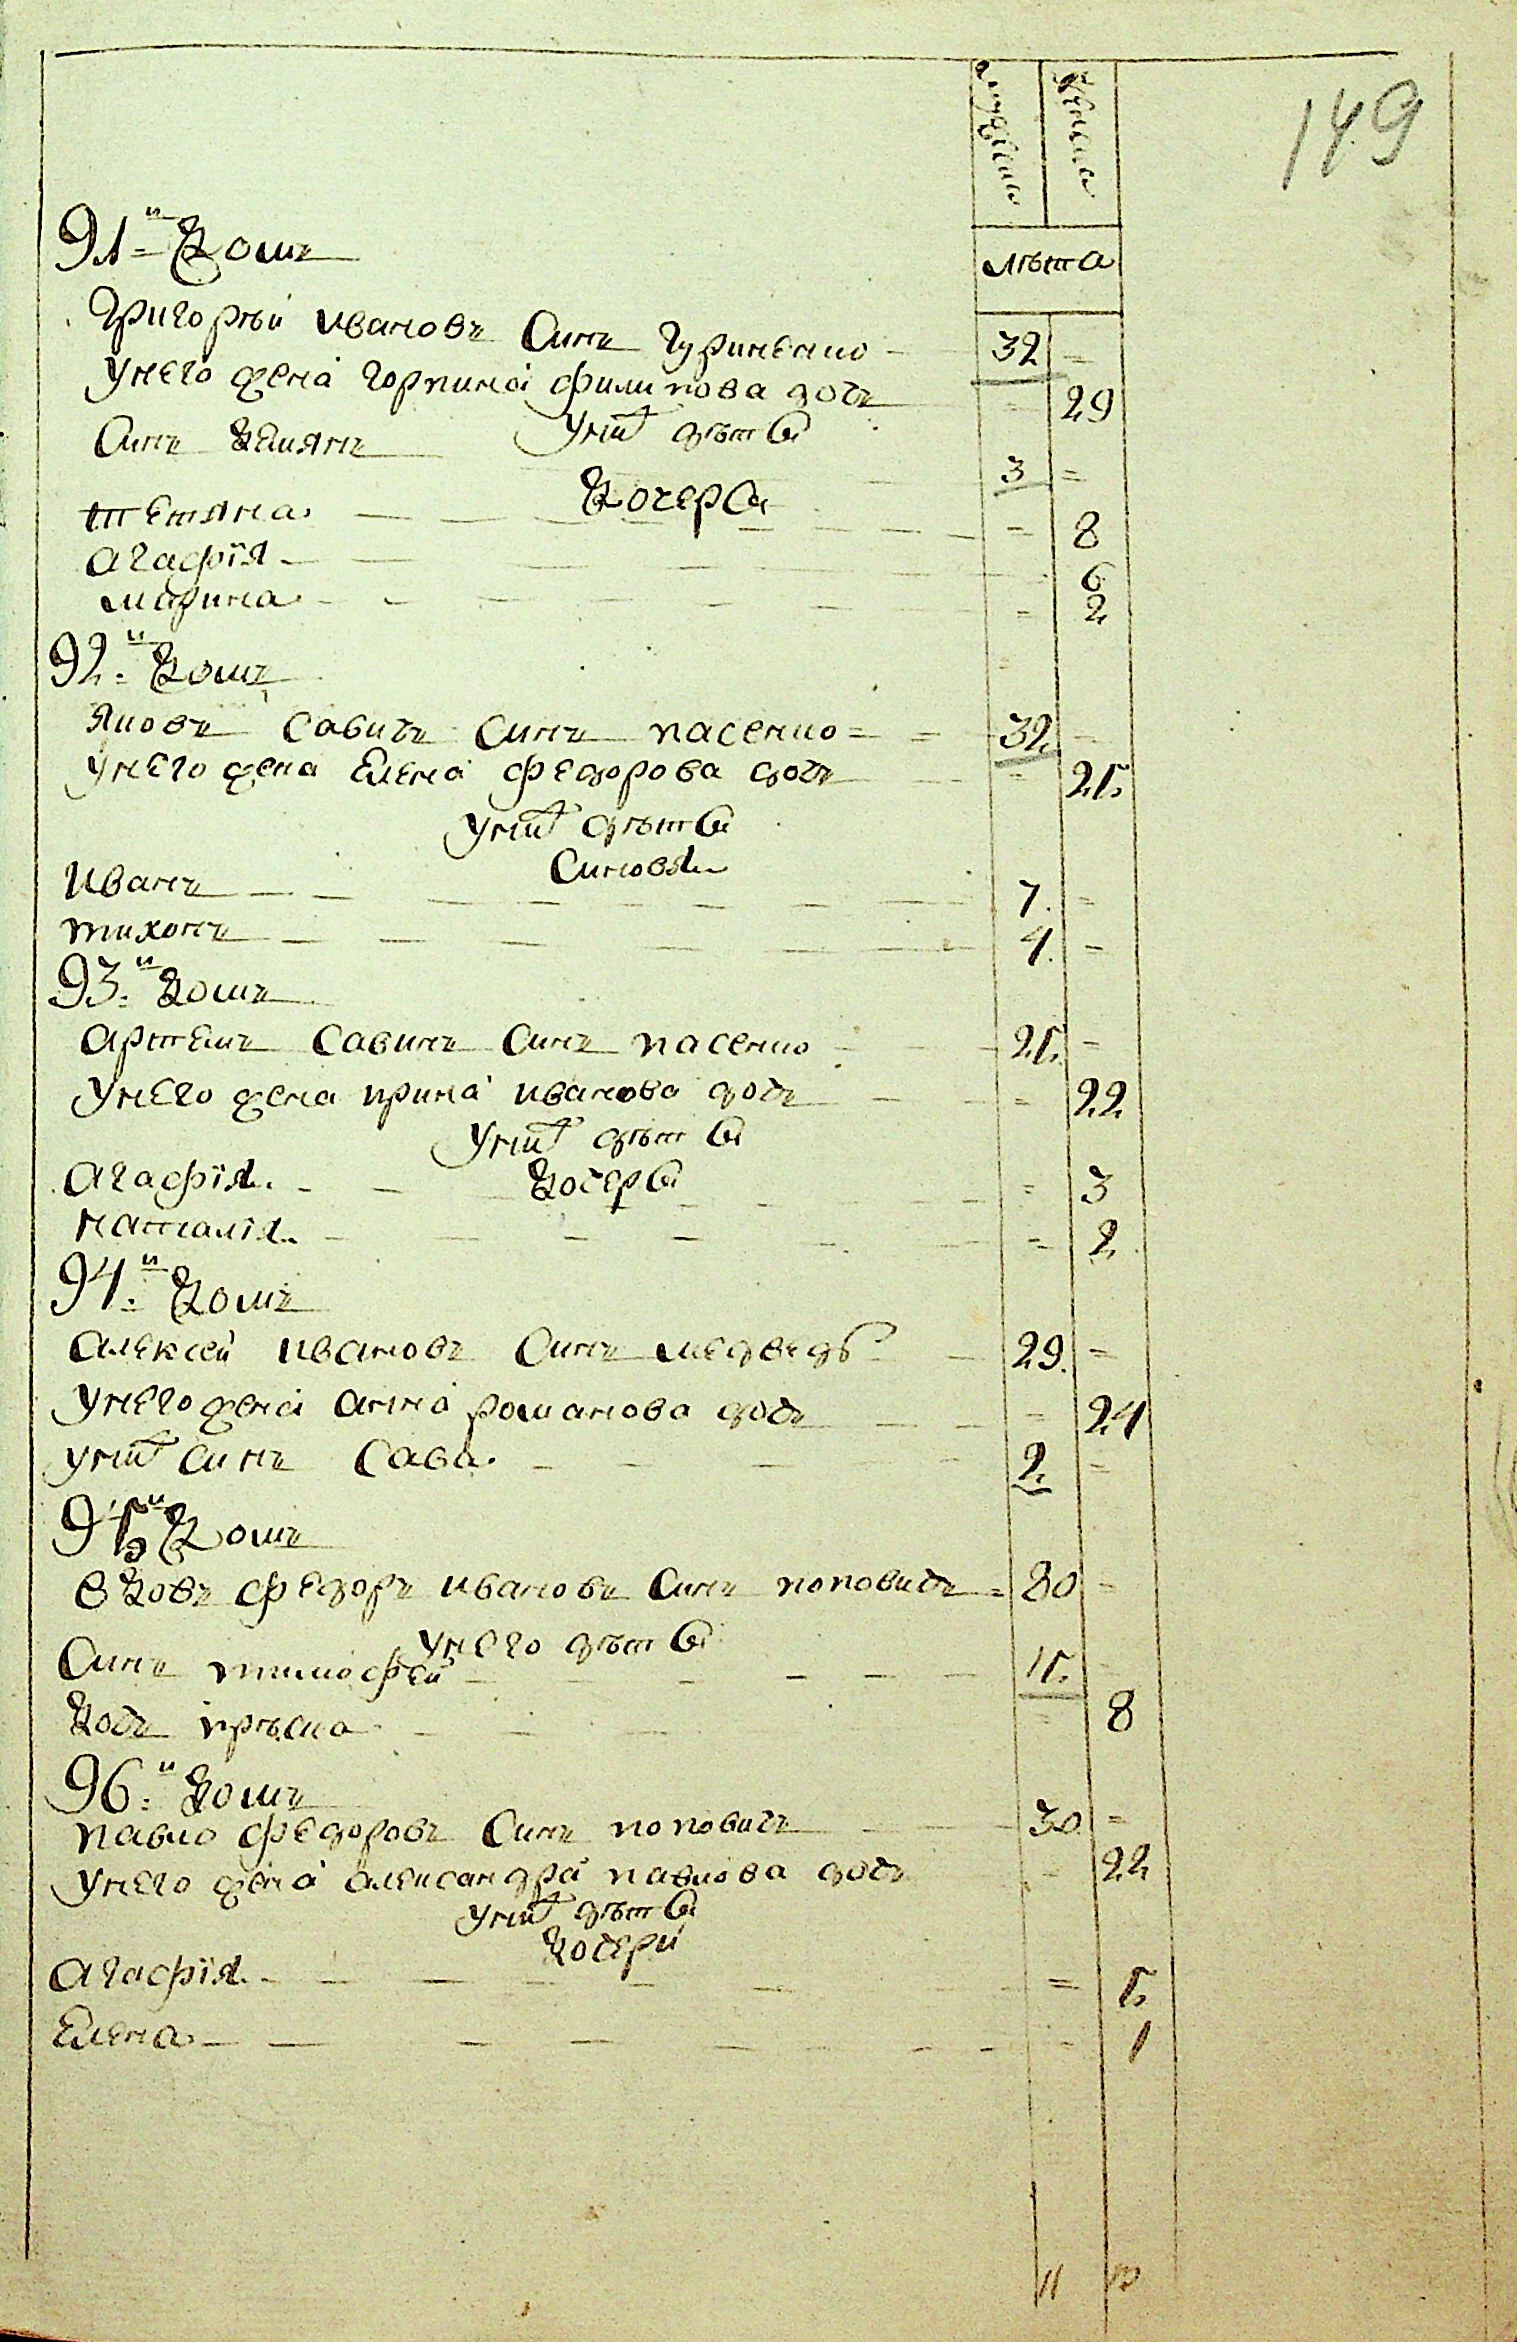 149
мужеска женска
лѣта
91й Домъ
Григорѣй Ивановъ Синъ Гуриненко 32 =
Унего жена Горпина Филипова дочь = 29
Уних дѣтей
Синъ Демянъ 3 =
Дочерей
Тетяна = 8
Агафія 6
Марина = 2
92й Домъ
Яковъ Савичъ Синъ Пасенко 32 =
Унего жена Елена Федорова дочь = 25
Уних дѣтей
Синовя
Иванъ 7 =
Тихонъ 4 =
93й Домъ
Артемъ Савинъ Синъ Пасенко 25 =
Унего жена Ирина Иванова дочь = 22
Уних дѣтей
Дочерей
Агафія = 3
Наталія = 2
94й Домъ
Алексей Ивановъ Синъ Медведь 29 =
Унего жена Анна Романова дочь = 24
Уних Синъ Сава 2 =
95й Домъ
Вдовъ Федоръ Ивановъ Синъ Поповичъ 80 =
Унего дѣтей
Синъ Тимофей 15
Дочь Прѣска = 8
96й Домъ
Павло Федоровъ Синъ Поповичъ 30 =
Унего жена Александра Павлова дочь = 22
Уних дѣтей
Дочери
Агафія = 5
Елена 1
11 13